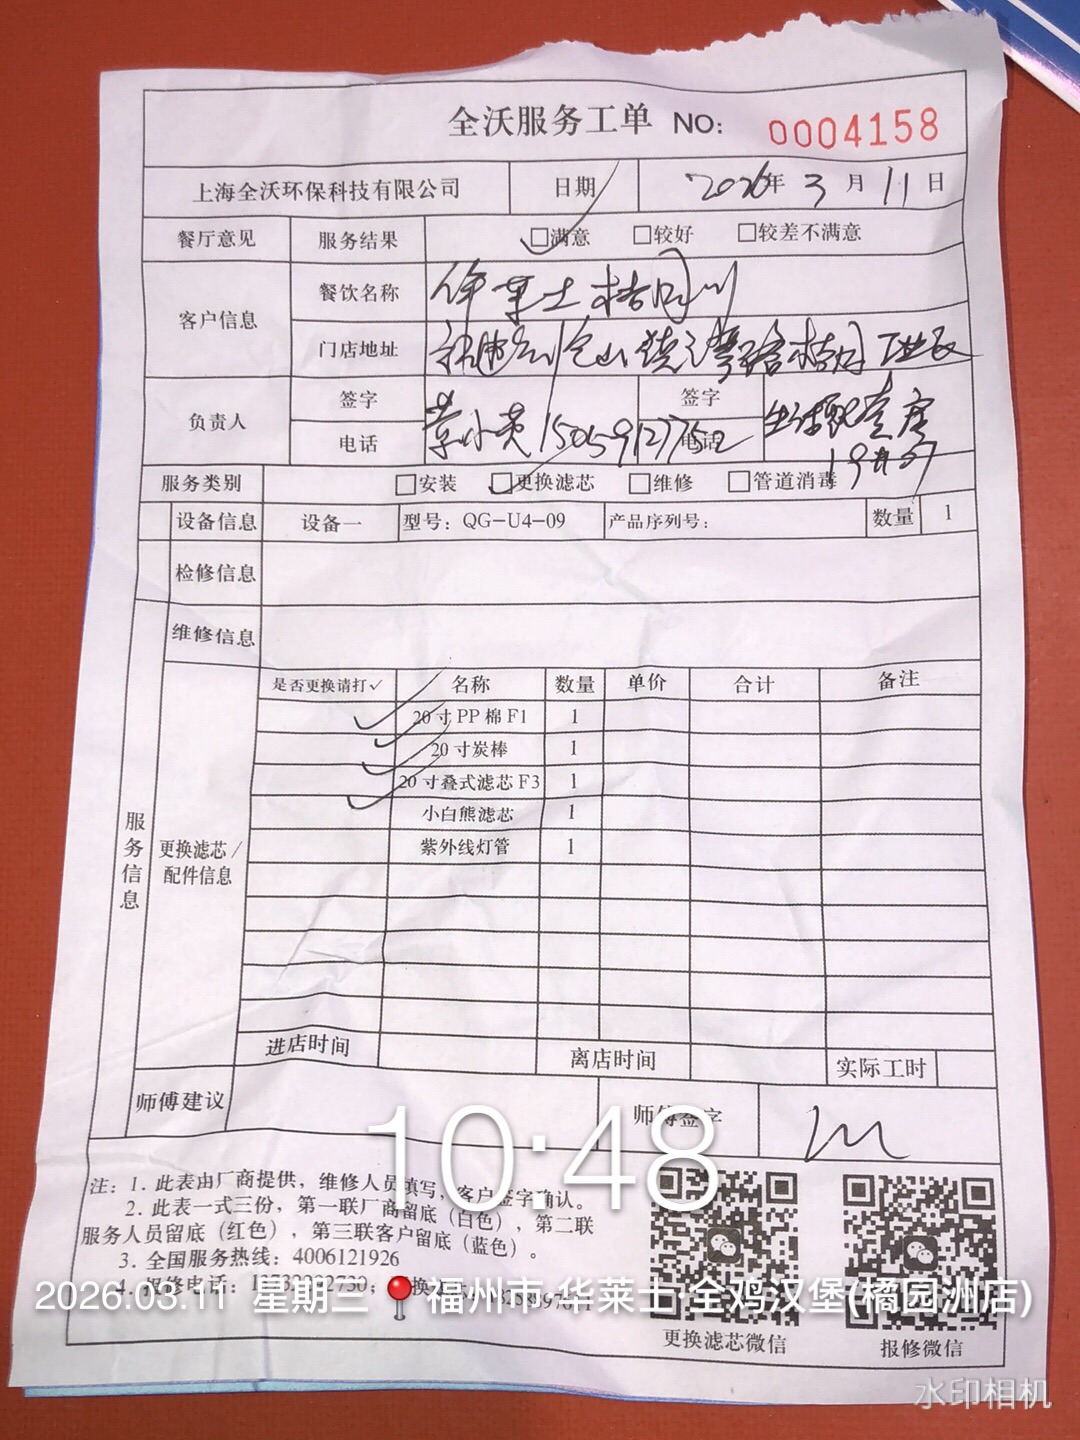 全沃服务工单 NO: 0004158
上海全沃环保科技有限公司 日期 2026年 3 月 11 日
餐厅意见 服务结果 □满意 □较好 □较差不满意
客户信息 餐饮名称
门店地址
负责人 签字 签字
电话 15059127752 电话
服务类别 □安装 □更换滤芯 □维修 □管道消毒
设备信息 设备一 型号: QG-U4-09 产品序列号: 数量 1
检修信息
维修信息
服务信息
更换滤芯/配件信息
是否更换请打✓ 名称 数量 单价 合计 备注
✓ 20寸PP棉F1 1
✓ 20寸炭棒 1
✓ 20寸叠式滤芯F3 1
✓ 小白熊滤芯 1
紫外线灯管 1
进店时间 离店时间 实际工时
师傅建议 师傅签字
10:48
注: 1. 此表由厂商提供, 维修人员填写, 客户签字确认。
2. 此表一式三份, 第一联厂商留底 (白色) , 第二联
服务人员留底 (红色) , 第三联客户留底 (蓝色) 。
3. 全国服务热线: 4006121926
4. 报修电话:
2026.03.11 星期三 福州市·华莱士·全鸡汉堡(橘园洲店)
更换滤芯微信 报修微信
水印相机